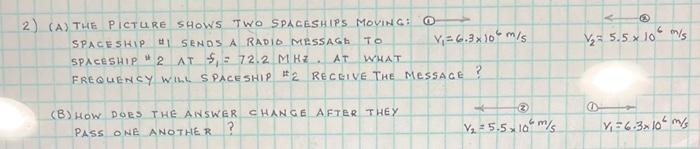 2) (A) THE PICTURE SHOWS TWO SPACESHIPS MOVING: ① ②
SPACESHIP #1 SENDS A RADIO MESSAGE TO V₁=6.3×10⁶ m/s V₂= 5.5×10⁶ m/s
SPACESHIP #2 AT f₁= 72.2 MHz. AT WHAT
FREQUENCY WILL SPACESHIP #2 RECEIVE THE MESSAGE?
(B) HOW DOES THE ANSWER CHANGE AFTER THEY ② ①
PASS ONE ANOTHER? V₂=5.5×10⁶ m/s V₁=6.3×10⁶ m/s